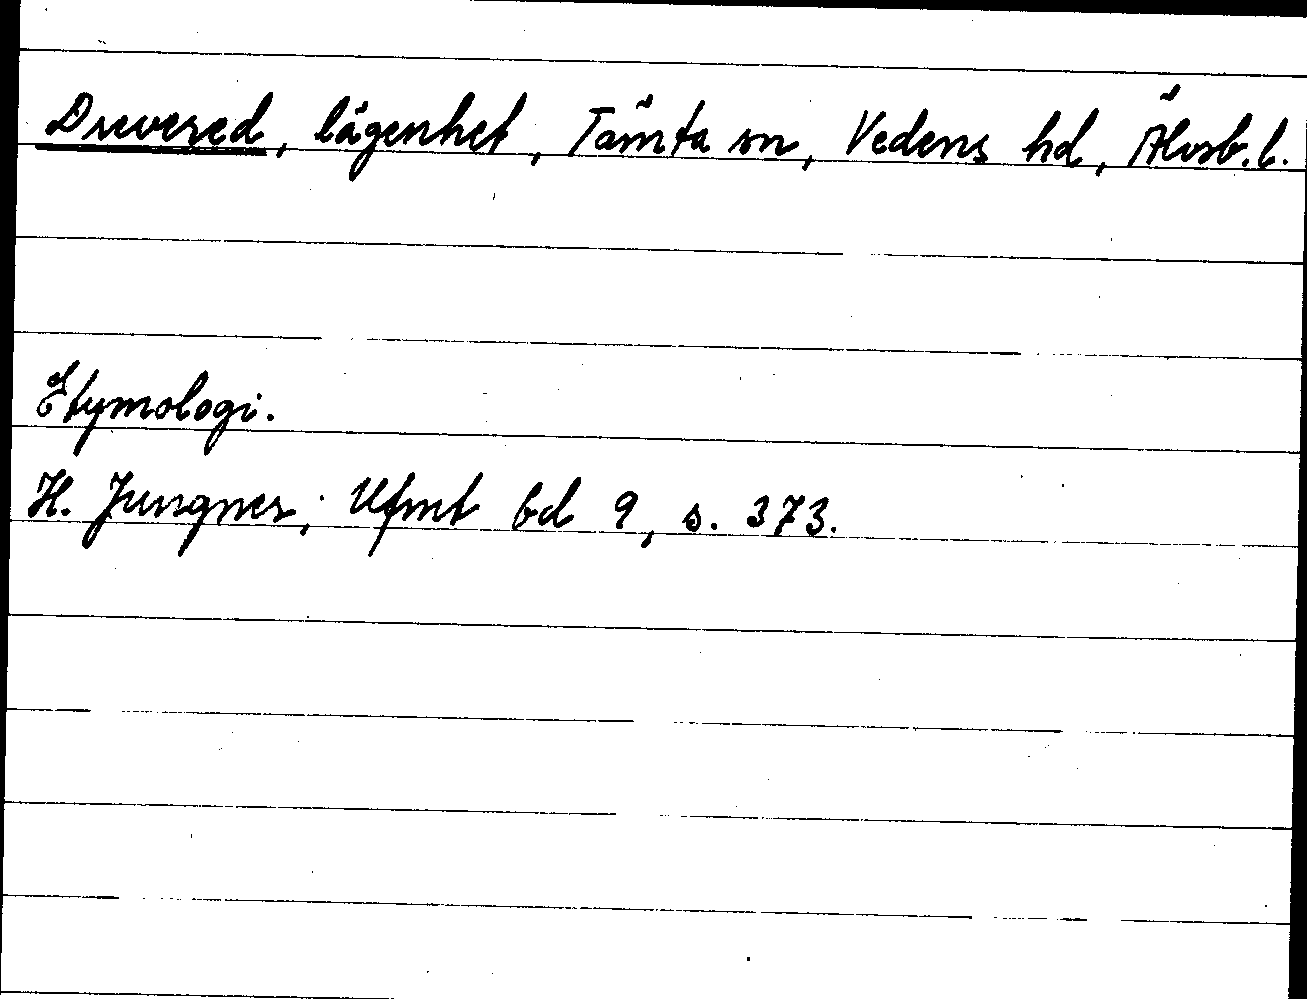 Drevered, lägenhet, Tämta sn, Vedens hd, Älvsb. l.
Etymologi.
H. Jungner, Ufmt bd 9, s. 373.